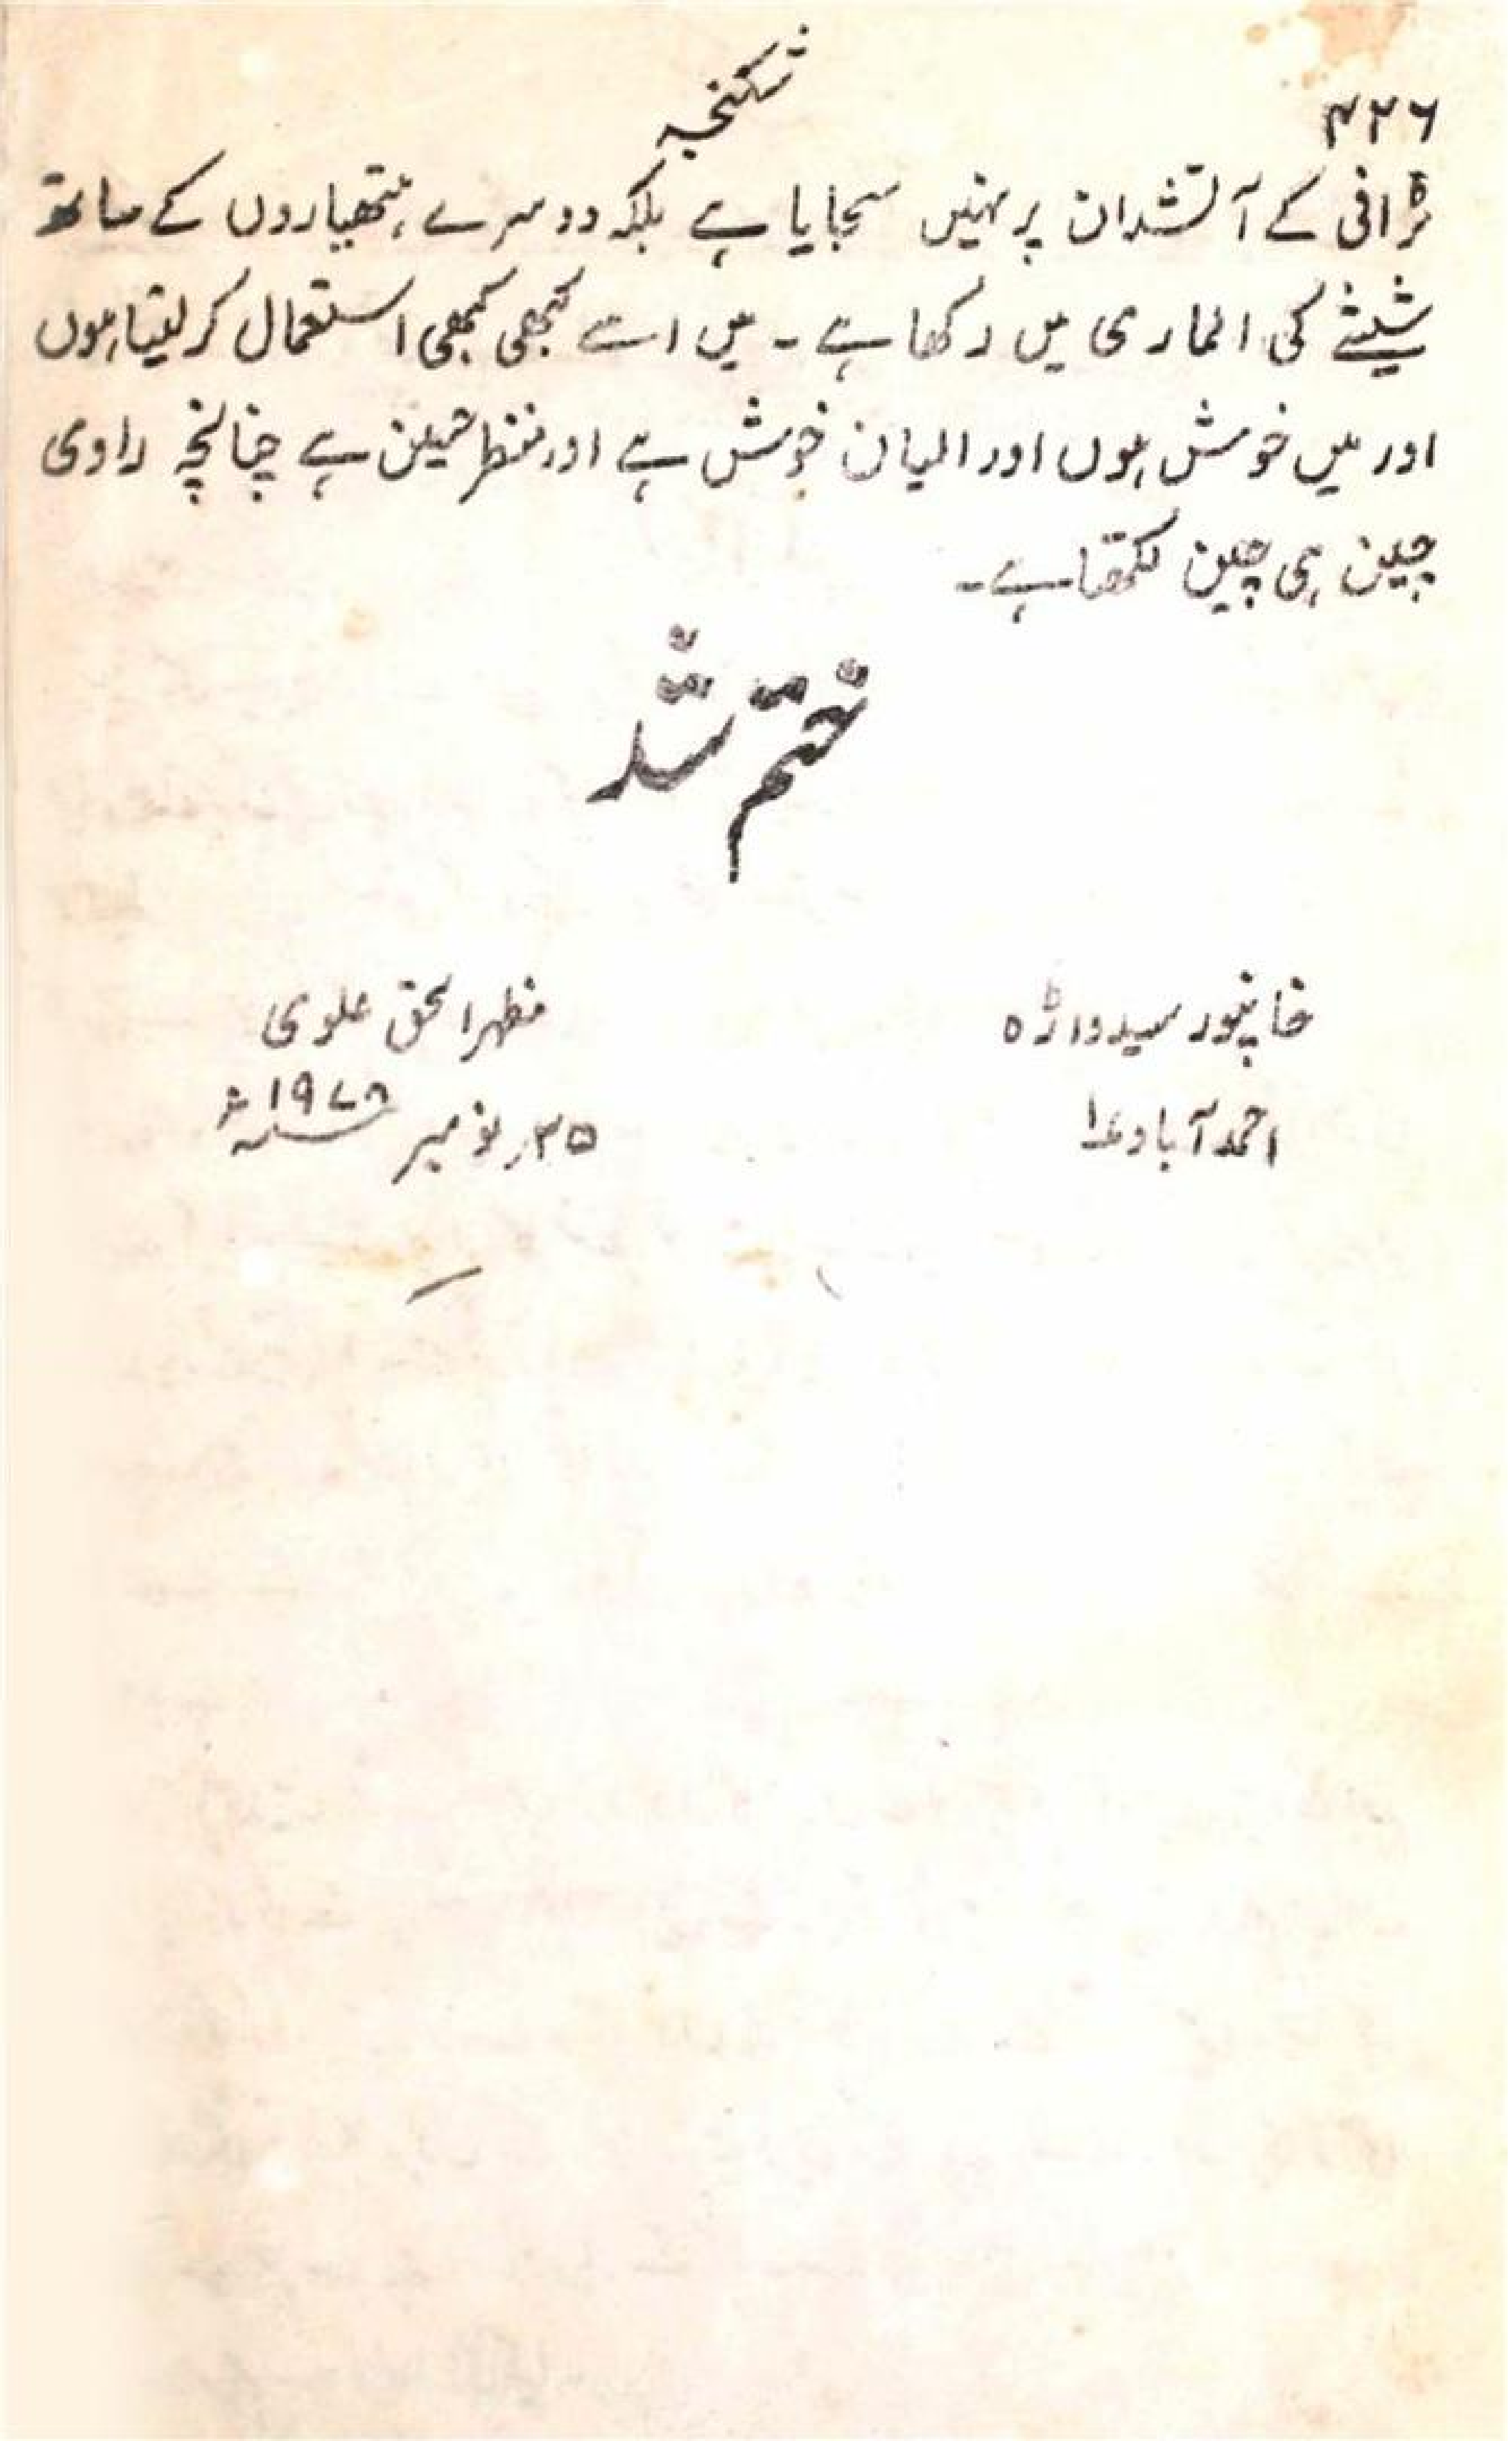 شکنجہ
۴۲۶
ٹرافی کے آتشدان پر نہیں سجایا ہے بلکہ دوسرے ہتھیاروں کے ساتھ
شیشے کی الماری میں رکھا ہے۔ میں اسے کبھی کبھی استعمال کر لیتا ہوں
اور میں خوش ہوں اور الیان خوش ہے اور منظر حسین ہے چنانچہ راوی
چین ہی چین لکھتا ہے۔
ختم شد
خانپور سیدواڑہ
احمدآباد ۱
مظہرالحق علوی
۲۵ نومبر